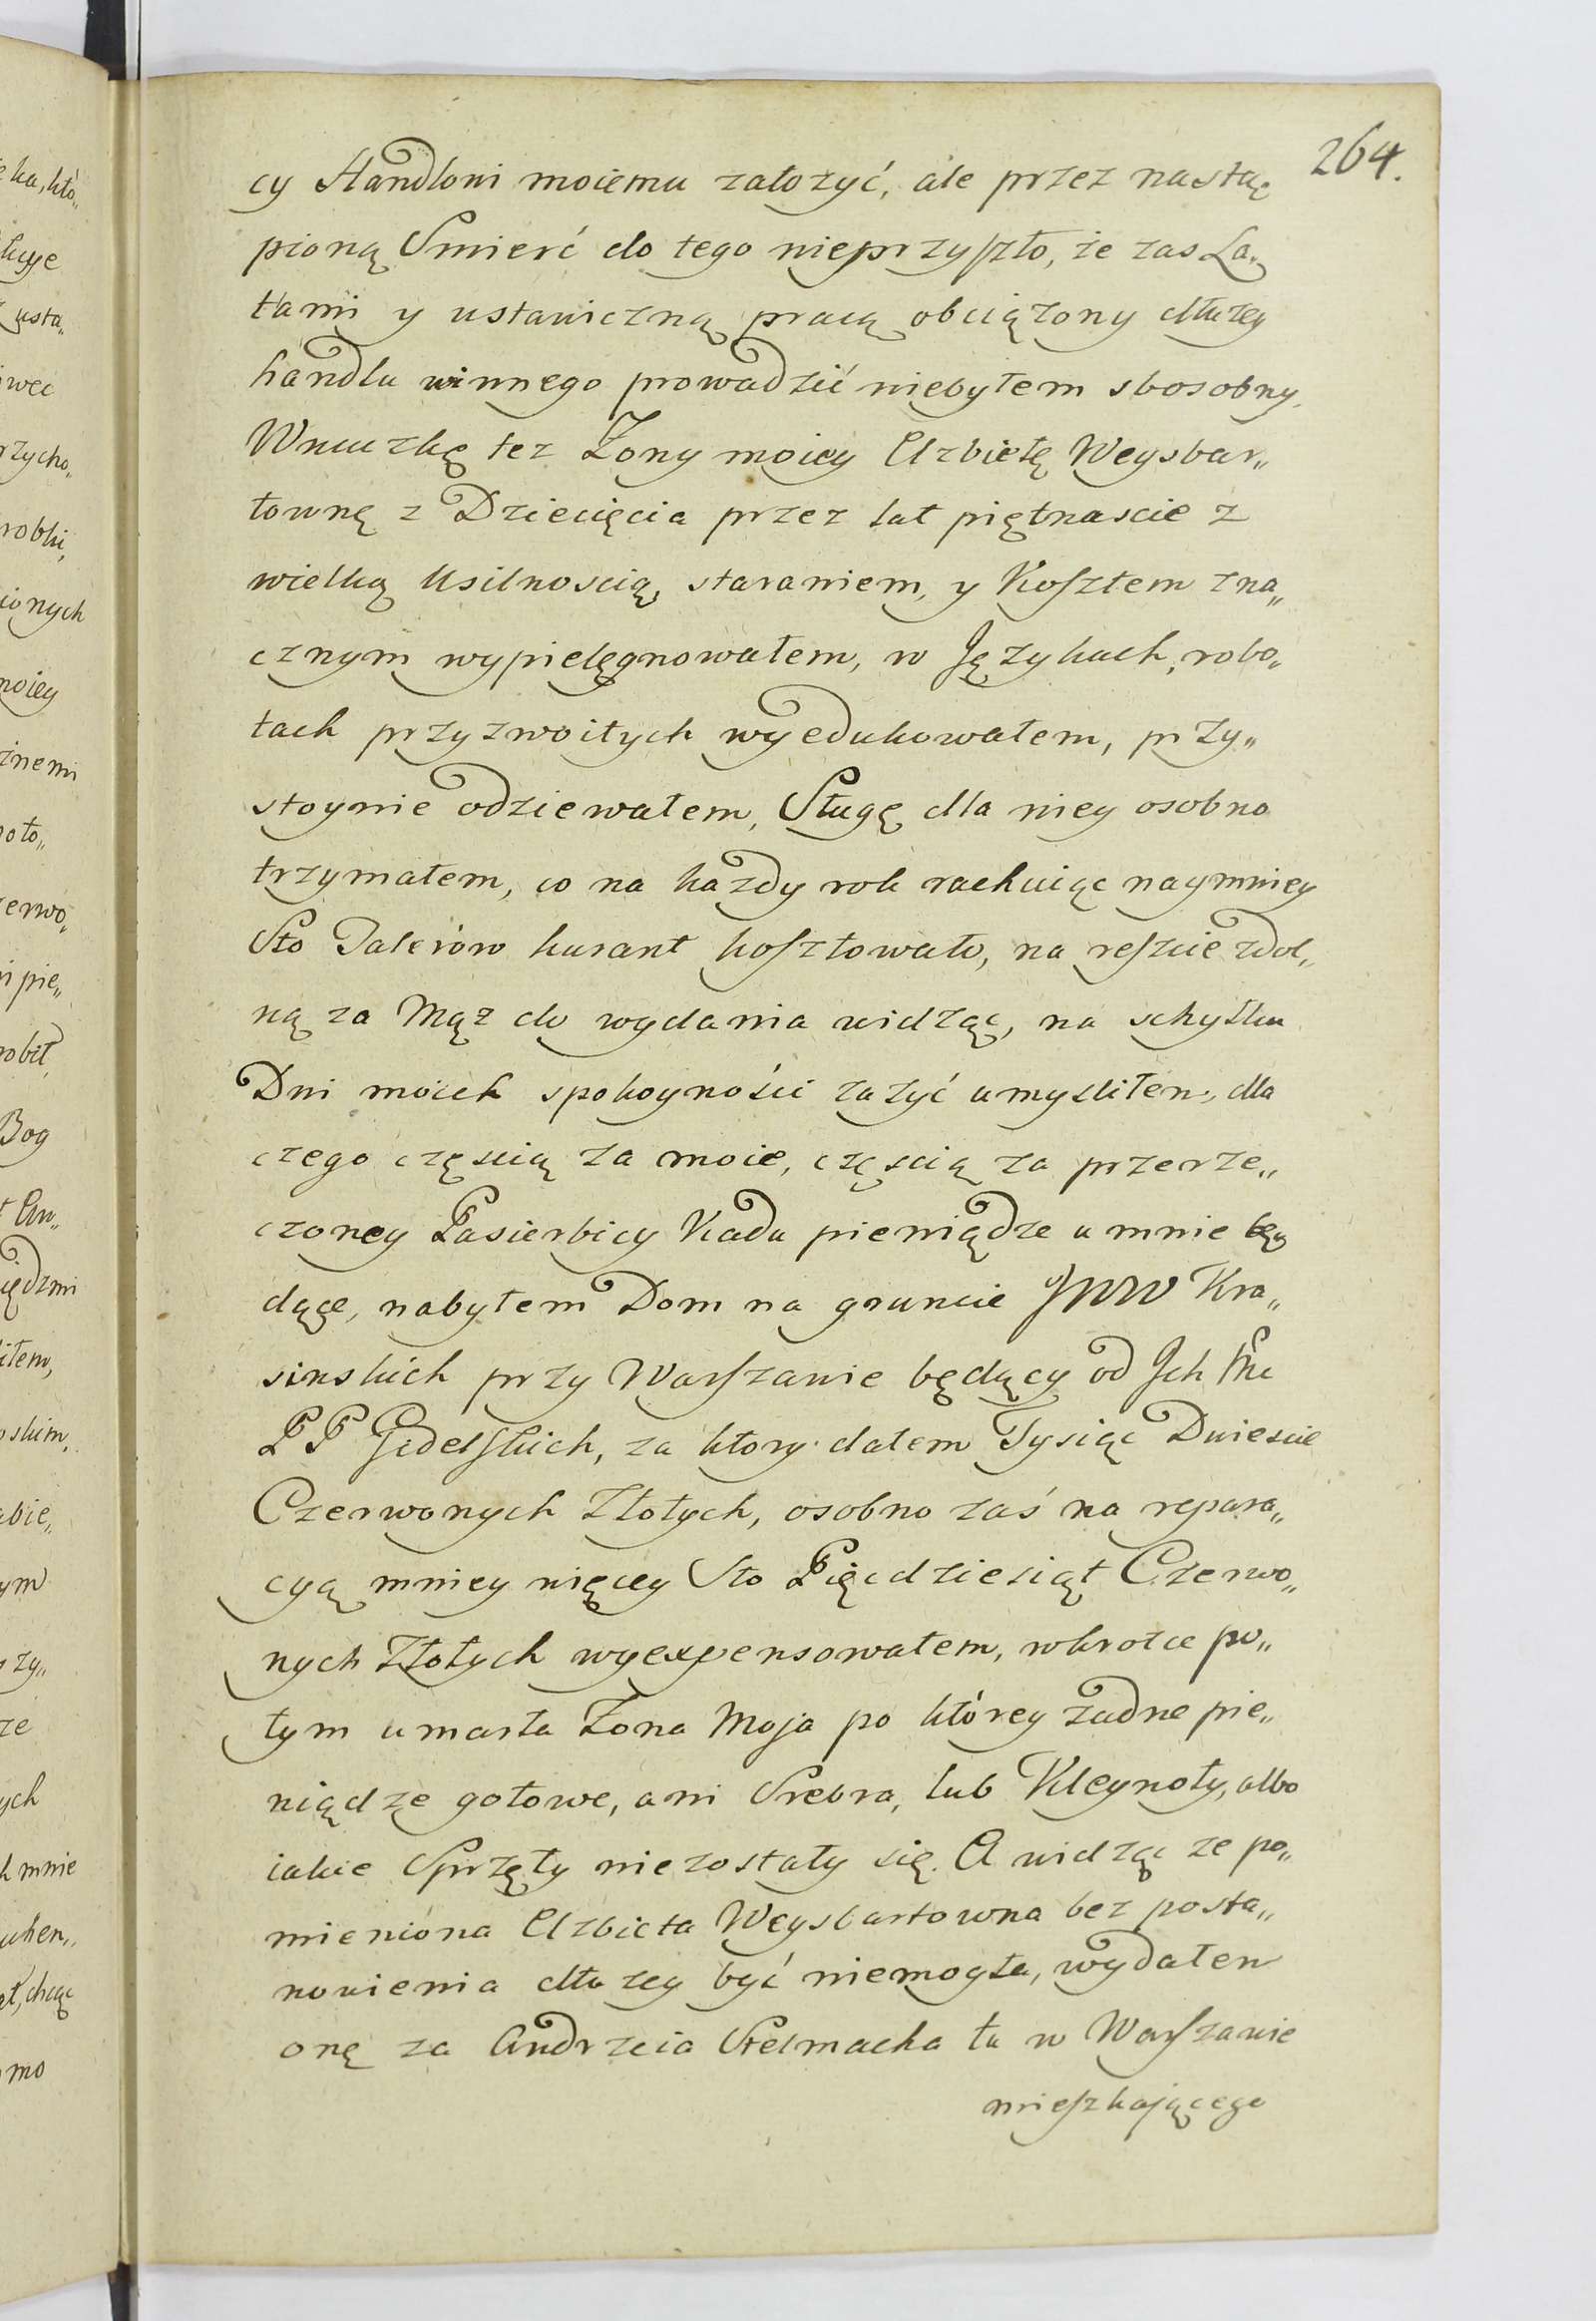 264.
cy Handlowi moiemu założyć, ale przez nastą
pioną Smierć do tego nieprzyszło, że zas La„
tami y ustawiczną pracą obciążony dłużey
handlu winnego prowadzić niebyłem sposobny,
Wnuczkę tez Zony moiey Elzbietę Weysbar„
townę z Dziecięcia przez lat piętnascie z
wielką usilnoscią, staraniem, y Kosztem zna„
cznym wypielęgnowałem, w Językach, robo„
tach przyzwoitych wyedukowałem, przy„
stoynie odziewałem, Sługę dla niey osobno
trzymałem, co na każdy rok rachuiąc naymniey
Sto Talerów kurant kosztowało, na reszcie zdol„
ną za Mąż do wydania widząc, na schyłku
Dni moich spokoyności zażyć umysliłem, dla
czego częscią za moie, częscią za przerze„
czoney Pasierbicy Kadu pieniądze u mnie bę„
dące, nabyłem Dom na gruncie JWW Kra„
sinskich przy Warszawie będący od Ich Mc
PP Gidelskich, za ktory dałem Tysiąc Dwiescie
Czerwonych Złotych, osobno zaś na repara„
cyą mniey więcey Sto Pięcdziesiąt Czerwo„
nych Złotych wyexpensowałem, wkrotce po„
tym umarła Zona Moja po którey żadne pie„
niądze gotowe, ani Srebra, lub Kleynoty, albo
iakie Sprzęty niezostały się. A widząc ze po„
mieniona Elzbieta Weysbartowna bez posta„
nowienia dłużey być niemogła, wydałem
onę za Andrzeia Stelmacha tu w Warszawie
mieszkającego
ka, któ„
usta„
rzycho„
robki,
ionych
moiey
żnemi
oto„
erwo„
i pie„
robił
Bog
iędzmi
iłem,
oskim,
abie„
ym
szy„
że
ych
k mnie
uken„
chcąc
mo